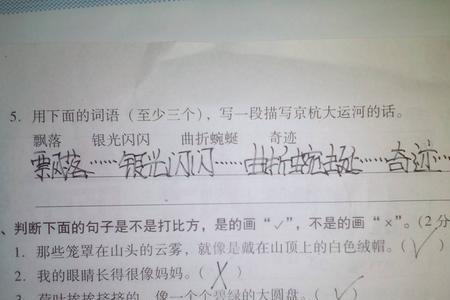 5. 用下面的词语（至少三个），写一段描写京杭大运河的话。
飘落 银光闪闪 曲折蜿蜒 奇迹
飘落……银光闪闪……曲折蜿蜒……奇迹……
、判断下面的句子是不是打比方，是的画“✓”，不是的画“×”。（2分
1. 那些笼罩在山头的云雾，就像是戴在山顶上的白色绒帽。（✓）
2. 我的眼睛长得很像妈妈。（×）
3. 荷叶挨挨挤挤的，像一个个碧绿的大圆盘。（✓）